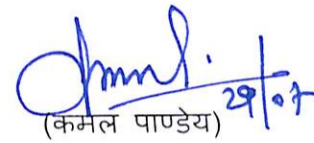 29/07
(कमल पाण्डेय)